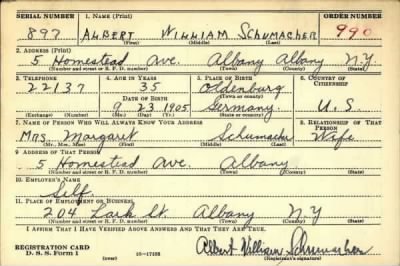 SERIAL NUMBER 1. NAME (Print) ORDER NUMBER
897 ALBERT WILLIAM SCHUMACHER 990
(First) (Middle) (Last)
2. ADDRESS (Print)
5 Homestead Ave. Albany Albany N.Y.
(Number and street or R. F. D. number) (Town) (County) (State)
3. TELEPHONE 4. AGE IN YEARS 5. PLACE OF BIRTH 6. COUNTRY OF CITIZENSHIP
22137 35 Oldenburg
DATE OF BIRTH (Town or county)
9 23 1905 Germany. U.S
(Exchange) (Number) (Mo.) (Day) (Yr.) (State or country)
7. NAME OF PERSON WHO WILL ALWAYS KNOW YOUR ADDRESS 8. RELATIONSHIP OF THAT PERSON
Mrs. Margaret Schumacher Wife
(Mr., Mrs., Miss) (First) (Middle) (Last)
9. ADDRESS OF THAT PERSON
5 Homestead Ave. Albany
(Number and street or R. F. D. number) (Town) (County) (State)
10. EMPLOYER'S NAME
Self
11. PLACE OF EMPLOYMENT OR BUSINESS
204 Lark St. Albany N.Y
(Number and street or R. F. D. number) (Town) (County) (State)
I AFFIRM THAT I HAVE VERIFIED ABOVE ANSWERS AND THAT THEY ARE TRUE.
REGISTRATION CARD Albert William Schumacher
D. S. S. Form 1 (over) 16—17105 (Registrant's signature)